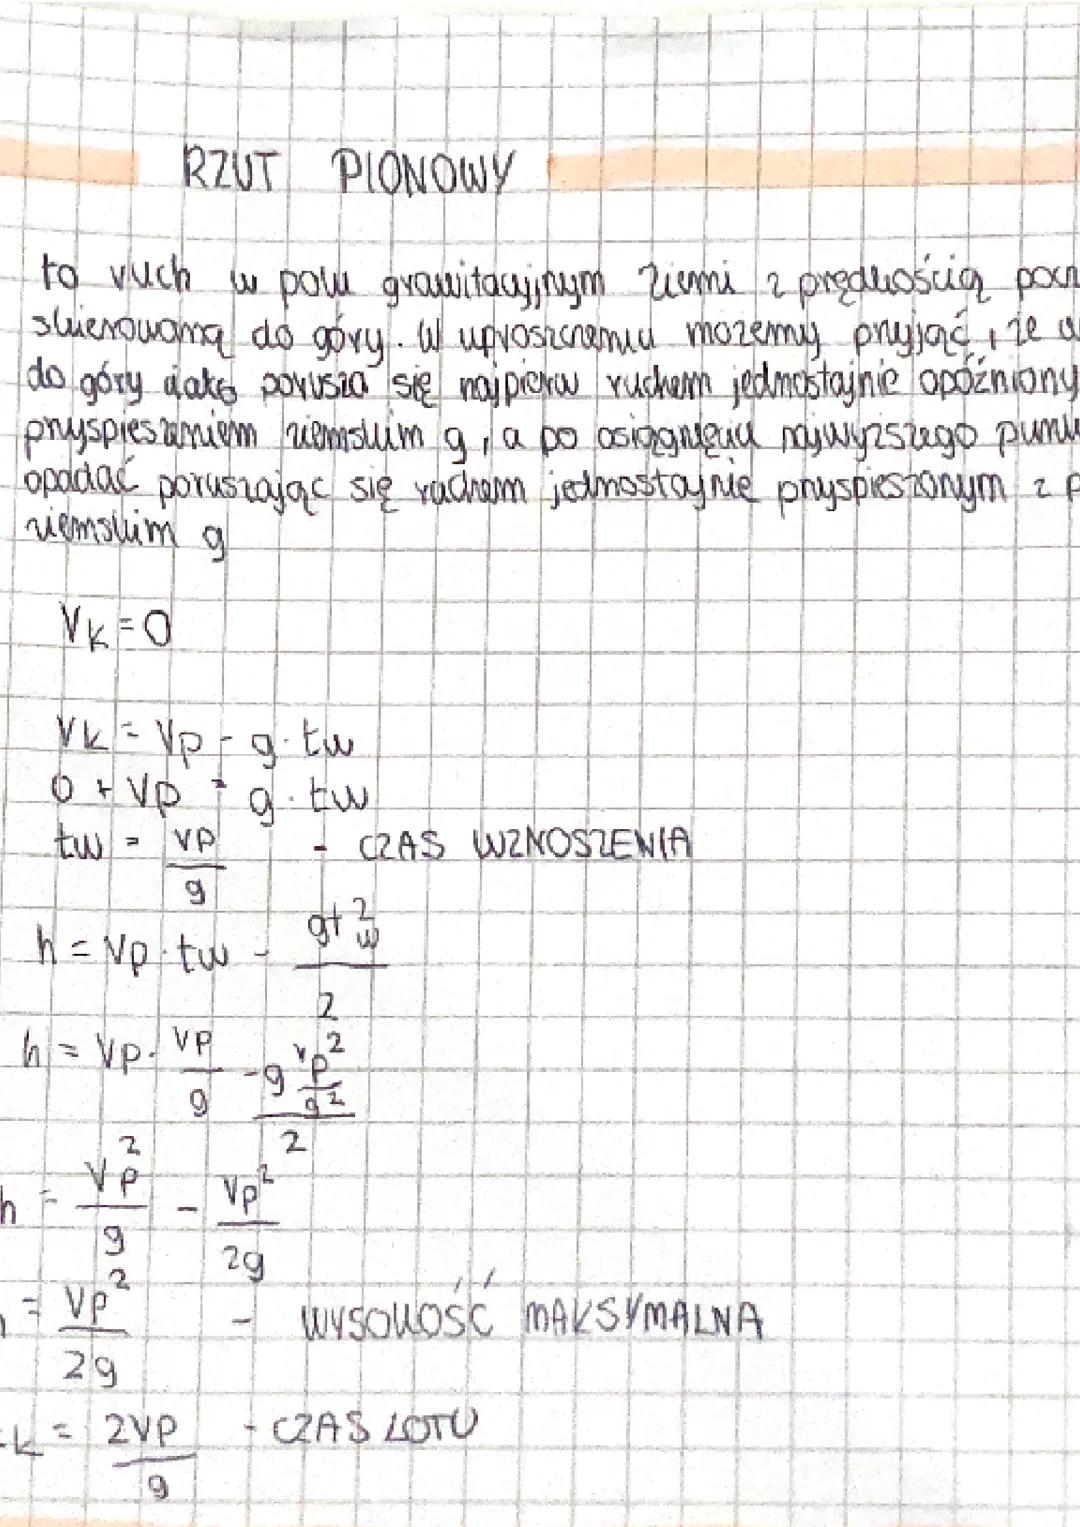 RZUT PIONOWY
to ruch w polu grawitacyjnym Ziemi z prędkością pocz
skierowaną do góry. W uproszczeniu możemy przyjąć, że
do góry ciało porusza się najpierw ruchem jednostajnie opóźniony
przyspieszeniem ziemskim g, a po osiągnięciu najwyższego punk
opadać poruszając się ruchem jednostajnie przyspieszonym z p
ziemskim g
Vk = 0
Vk = Vp - g · tw
0 + Vp = g · tw
tw = Vp/g - CZAS WZNOSZENIA
h = Vp · tw - gt²w/2
h = Vp · Vp/g - g Vp²/g² / 2
h = Vp²/g - Vp²/2g
= Vp²/2g - WYSOKOŚĆ MAKSYMALNA
k = 2Vp/g - CZAS LOTU